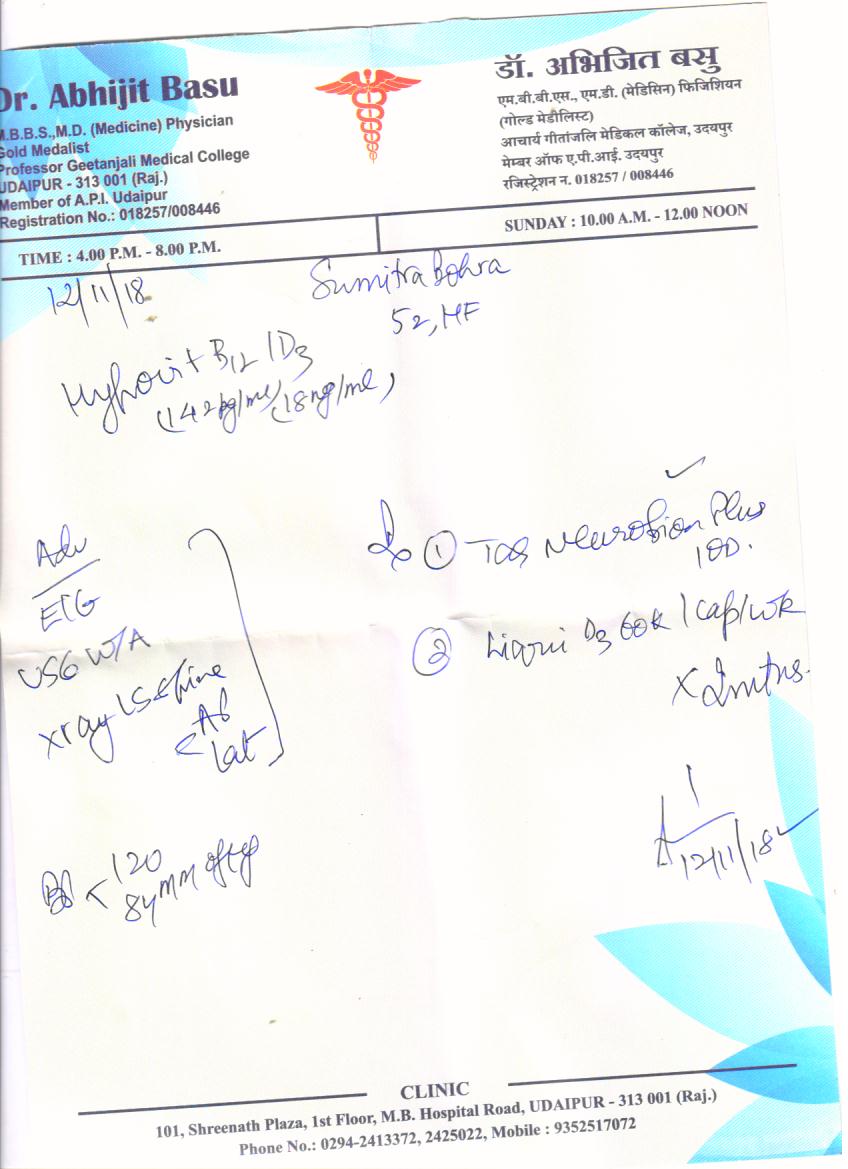 Dr. Abhijit Basu
M.B.B.S.,M.D. (Medicine) Physician
Gold Medalist
Professor Geetanjali Medical College
UDAIPUR - 313 001 (Raj.)
Member of A.P.I. Udaipur
Registration No.: 018257/008446
डॉ. अभिजित बसु
एम.बी.बी.एस., एम.डी. (मेडिसिन) फिजिशियन
(गोल्ड मेडीलिस्ट)
आचार्य गीतांजलि मेडिकल कॉलेज, उदयपुर
मेम्बर ऑफ ए.पी.आई. उदयपुर
रजिस्ट्रेशन न. 018257 / 008446
TIME : 4.00 P.M. - 8.00 P.M.
SUNDAY : 10.00 A.M. - 12.00 NOON
12/11/18
Sumitra Bohra
52, HF
B12 / D3
(142 pg/ml) (18 ng/ml)
Adv
ECG
USG W/A
xray LS Spine
Lat
① Tab Neurobion Plus
1 OD.
② D3 60k 1 cap/wk
x 2 mtns.
120
84 mm of Hg
12/11/18
CLINIC
101, Shreenath Plaza, 1st Floor, M.B. Hospital Road, UDAIPUR - 313 001 (Raj.)
Phone No.: 0294-2413372, 2425022, Mobile : 9352517072